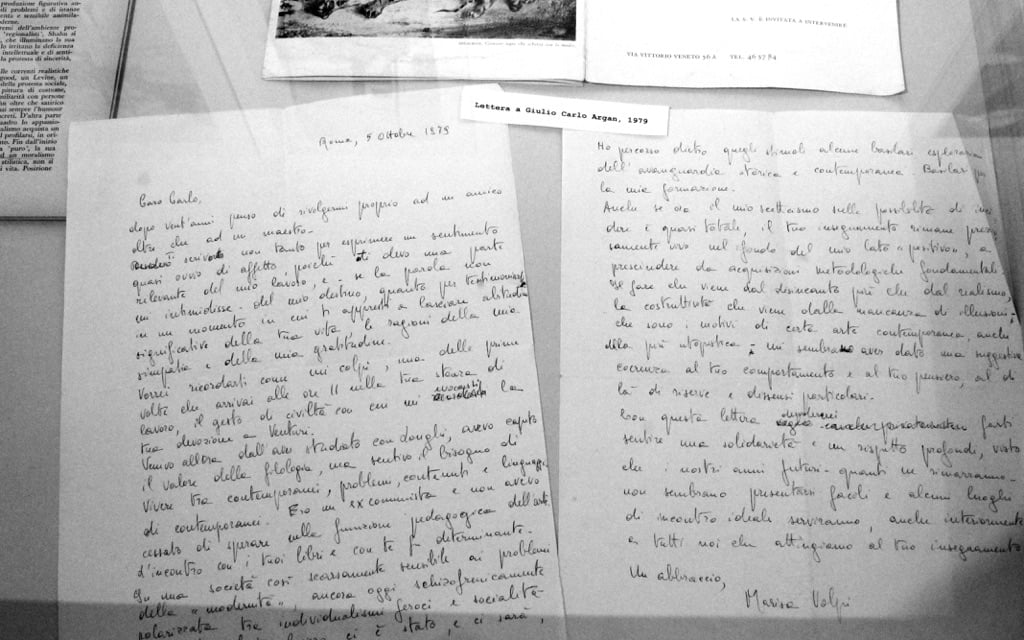 produzione figurativa an-
di problemi e di istanze
enti e sensibile assimila-
oderne.
remi dell'ambiente pro-
'regionalisti', Shahn si
, che illuminano la sua
lo irritano la deficienza
intellettuale e di senti-
la protesta di sincerità,
lle correnti realistiche
good, un Levine, un
della protesta sociale,
pittura di costume,
miliarità con persone
ha oltre che satirico
ai sempre l'humour
creti. D'altra parte
uadro. In apposizio-
alismo acquista un
profilarsi, in ori-
no. Fin dall'inizio
'puro', la sua
d un moralismo
stilistica, non si
i vita. Posizione
LA S. V. È INVITATA A INTERVENIRE
VIA VITTORIO VENETO 56 A TEL. 463784
Lettera a Giulio Carlo Argan, 1979
Roma, 5 Ottobre 1979
Caro Carlo,
dopo vent'anni penso di rivolgermi proprio ad un amico
oltre che ad un maestro.
scrivo non tanto per esprimere un sentimento
quasi ovvio di affetto, poiché ti devo una parte
rilevante del mio lavoro, e - se la parola non
mi intimidisse - del mio destino, quanto per testimoniarti
in un momento in cui ti appresti a lasciare abitudini
significative della tua vita, le ragioni della mia
simpatia e della mia gratitudine.
Vorrei ricordarti come mi colpì, una delle prime
volte che arrivai alle ore 11 nella tua stanza di
lavoro, il gesto di civiltà con cui mi la
tua devozione a Venturi.
Venivo allora dall'aver studiato con Longhi, avevo capito
il valore della filologia, ma sentivo il bisogno di
vivere tra contemporanei, problemi, contenuti e linguaggi
di contemporanei. Ero un ex comunista e non avevo
cessato di sperare nella funzione pedagogica dell'arte.
L'incontro con i tuoi libri e con te fu determinante.
In una società così scarsamente sensibile ai problemi
della "modernità", ancora oggi schizofrenicamente
polarizzata tra individualismi feroci e socialità
ci è stato, e ci sarà,
Ho percorso dietro quegli stimoli alcune basilari esplorazioni
dell'avanguardia storica e contemporanea. Basilari per
la mia formazione.
Anche se ora il mio scetticismo sulle possibilità di inci
dere è quasi totale, il tuo insegnamento rimane preci
samente vivo nel fondo del mio lato "positivo", a
prescindere da acquisizioni metodologiche fondamentali
Il fare che viene dal disincanto più che dal realismo,
la costruttività che viene dalla mancanza di illusioni-
che sono i motivi di certa arte contemporanea, anche
della più utopistica - mi sembrano aver dato una suggestiva
coerenza al tuo comportamento e al tuo pensiero, al di
là di riserve e dissensi particolari.
Con questa lettera desidererei farti
sentire una solidarietà e un rispetto profondi, visto
che i nostri anni futuri - quanti ne rimarranno -
non sembrano presentarsi facili e alcuni luoghi
di incontro ideale serviranno, anche interiormente
a tutti noi che attingiamo al tuo insegnamento
Un abbraccio,
Marisa Volpi